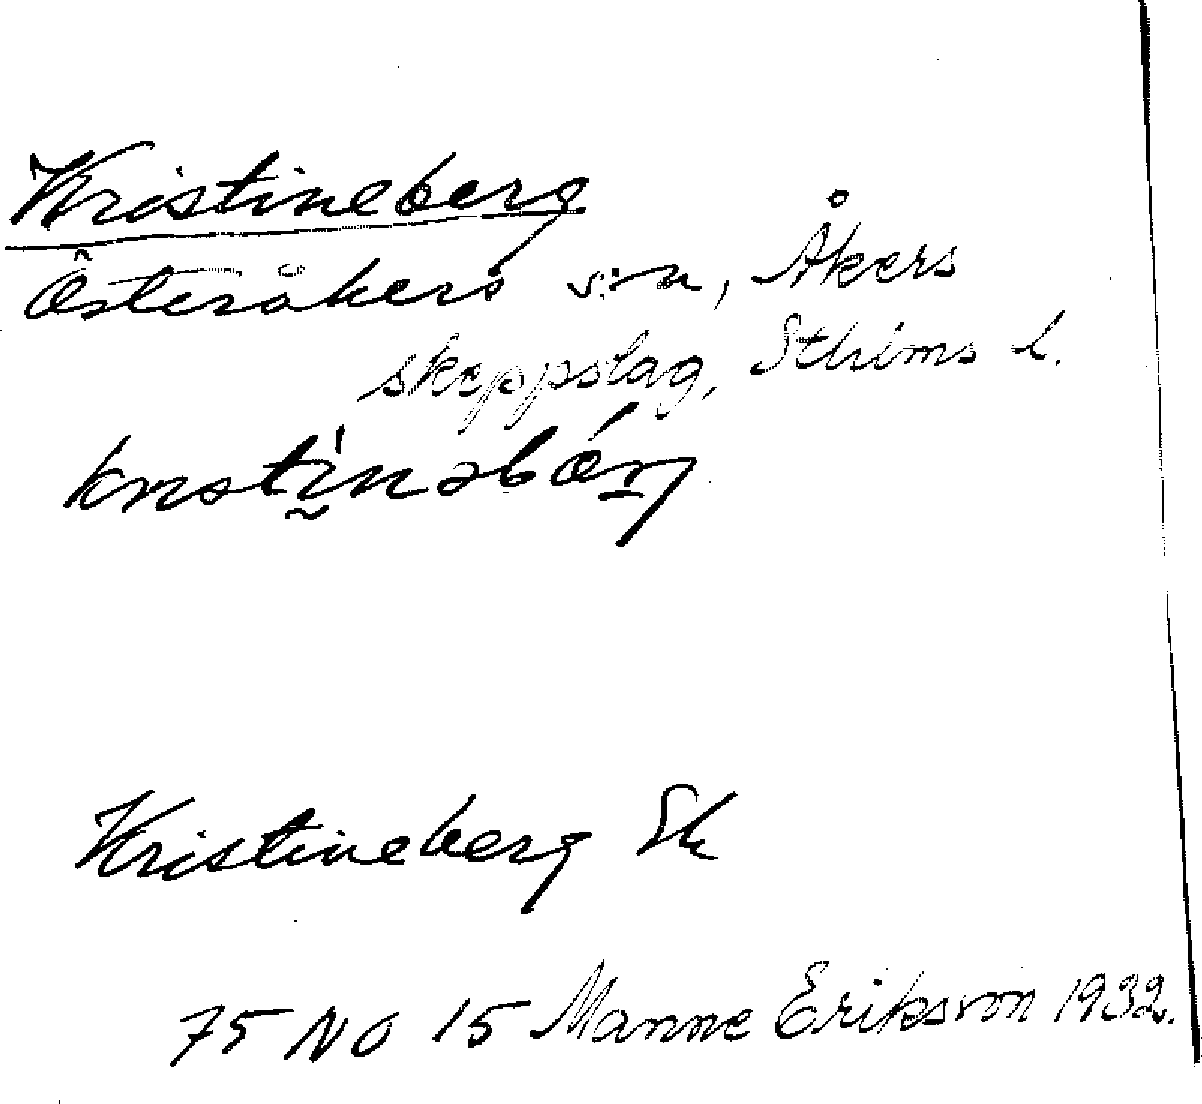 Kristineberg
Österåkers s:n, Åkers
skeppslag, Sthlms l.
Kristineberg Sk
75 NO 15 Manne Eriksson 1932.